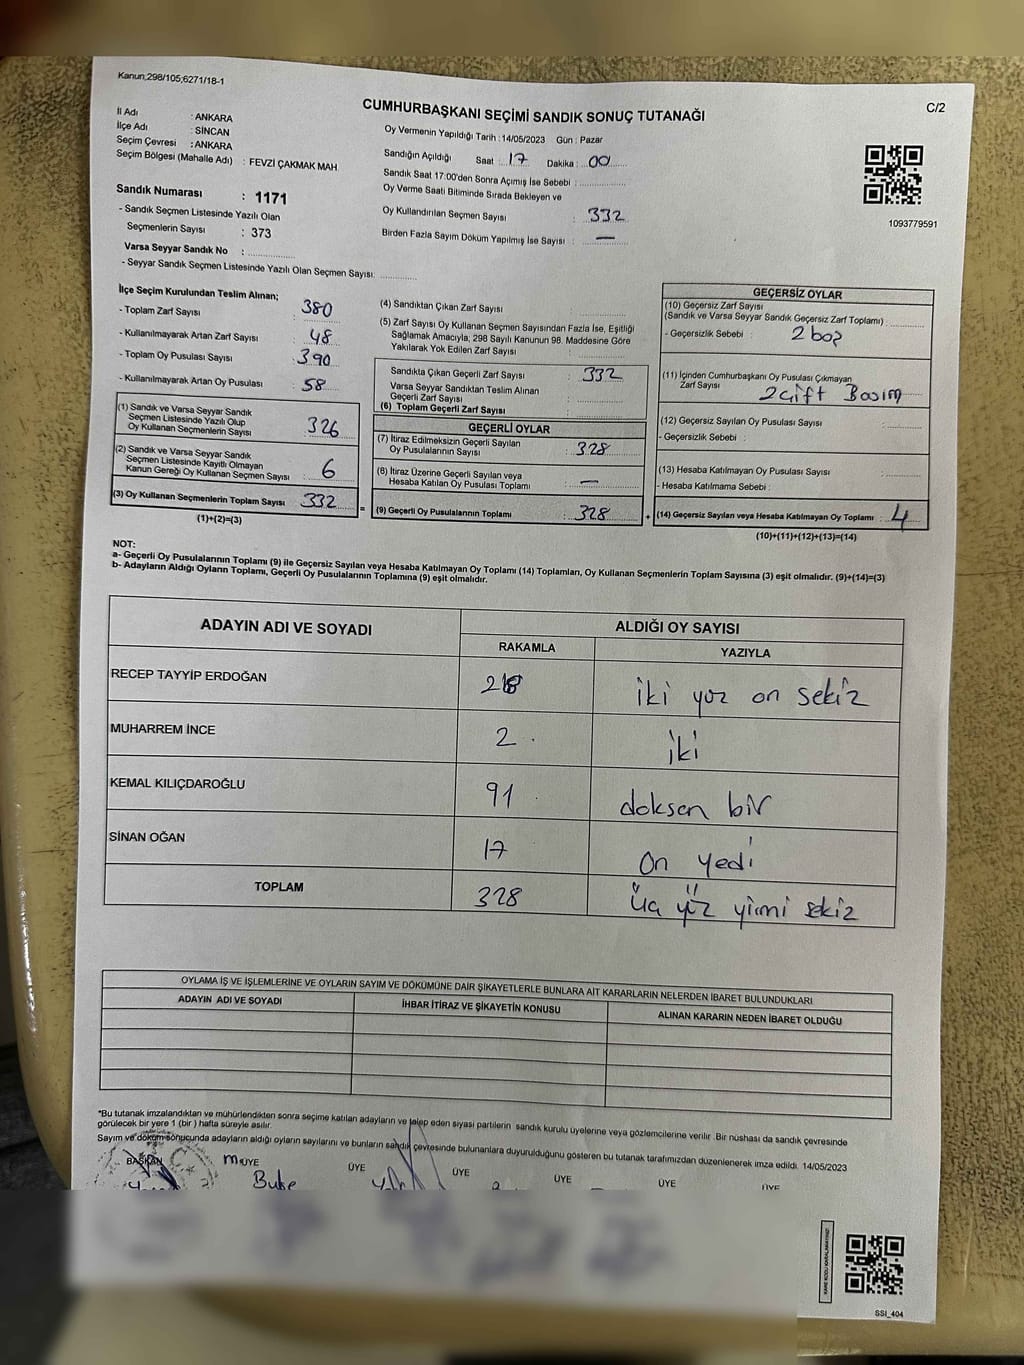 Kanun;298/105,6271/18-1
C/2
CUMHURBAŞKANI SEÇİMİ SANDIK SONUÇ TUTANAĞI
İl Adı : ANKARA
İlçe Adı : SİNCAN
Seçim Çevresi : ANKARA
Seçim Bölgesi (Mahalle Adı) : FEVZİ ÇAKMAK MAH
Sandık Numarası : 1171
- Sandık Seçmen Listesinde Yazılı Olan
Seçmenlerin Sayısı : 373
Varsa Seyyar Sandık No :
- Seyyar Sandık Seçmen Listesinde Yazılı Olan Seçmen Sayısı:
Oy Vermenin Yapıldığı Tarih : 14/05/2023 Gün : Pazar
Sandığın Açıldığı Saat : 17 Dakika : 00
Sandık Saat 17:00'den Sonra Açımış İse Sebebi :
Oy Verme Saati Bitiminde Sırada Bekleyen ve
Oy Kullandırılan Seçmen Sayısı : 332
Birden Fazla Sayım Döküm Yapılmış İse Sayısı : —
1093779591
İlçe Seçim Kurulundan Teslim Alınan;
- Toplam Zarf Sayısı : 380
- Kullanılmayarak Artan Zarf Sayısı : 48
- Toplam Oy Pusulası Sayısı : 390
- Kullanılmayarak Artan Oy Pusulası : 58
(1) Sandık ve Varsa Seyyar Sandık
Seçmen Listesinde Yazılı Olup
Oy Kullanan Seçmenlerin Sayısı : 326
(2) Sandık ve Varsa Seyyar Sandık
Seçmen Listesinde Kayıtlı Olmayan
Kanun Gereği Oy Kullanan Seçmen Sayısı : 6
(3) Oy Kullanan Seçmenlerin Toplam Sayısı : 332
(1)+(2)=(3)
(4) Sandıktan Çıkan Zarf Sayısı :
(5) Zarf Sayısı Oy Kullanan Seçmen Sayısından Fazla İse, Eşitliği
Sağlamak Amacıyla; 298 Sayılı Kanunun 98. Maddesine Göre
Yakılarak Yok Edilen Zarf Sayısı :
Sandıkta Çıkan Geçerli Zarf Sayısı : 332
Varsa Seyyar Sandıktan Teslim Alınan
Geçerli Zarf Sayısı :
(6) Toplam Geçerli Zarf Sayısı :
GEÇERLİ OYLAR
(7) İtiraz Edilmeksizin Geçerli Sayılan
Oy Pusulalarının Sayısı : 328
(8) İtiraz Üzerine Geçerli Sayılan veya
Hesaba Katılan Oy Pusulası Toplamı : —
(9) Geçerli Oy Pusulalarının Toplamı : 328
GEÇERSİZ OYLAR
(10) Geçersiz Zarf Sayısı
(Sandık ve Varsa Seyyar Sandık Geçersiz Zarf Toplamı) :
- Geçersizlik Sebebi : 2 boş
(11) İçinden Cumhurbaşkanı Oy Pusulası Çıkmayan
Zarf Sayısı : 2 Çift Basım
(12) Geçersiz Sayılan Oy Pusulası Sayısı :
- Geçersizlik Sebebi :
(13) Hesaba Katılmayan Oy Pusulası Sayısı :
- Hesaba Katılmama Sebebi :
(14) Geçersiz Sayılan veya Hesaba Katılmayan Oy Toplamı : 4
(10)+(11)+(12)+(13)=(14)
NOT:
a- Geçerli Oy Pusulalarının Toplamı (9) ile Geçersiz Sayılan veya Hesaba Katılmayan Oy Toplamı (14) Toplamları, Oy Kullanan Seçmenlerin Toplam Sayısına (3) eşit olmalıdır. (9)+(14)=(3)
b- Adayların Aldığı Oyların Toplamı, Geçerli Oy Pusulalarının Toplamına (9) eşit olmalıdır.
ADAYIN ADI VE SOYADI
ALDIĞI OY SAYISI
RAKAMLA YAZIYLA
RECEP TAYYİP ERDOĞAN 218 iki yüz on sekiz
MUHARREM İNCE 2 iki
KEMAL KILIÇDAROĞLU 91 doksan bir
SİNAN OĞAN 17 On yedi
TOPLAM 328 üç yüz yirmi sekiz
OYLAMA İŞ VE İŞLEMLERİNE VE OYLARIN SAYIM VE DÖKÜMÜNE DAİR ŞİKAYETLERLE BUNLARA AİT KARARLARIN NELERDEN İBARET BULUNDUKLARI
ADAYIN ADI VE SOYADI İHBAR İTİRAZ VE ŞİKAYETİN KONUSU ALINAN KARARIN NEDEN İBARET OLDUĞU
*Bu tutanak imzalandıktan ve mühürlendikten sonra seçime katılan adayların ve talep eden siyasi partilerin sandık kurulu üyelerine veya gözlemcilerine verilir .Bir nüshası da sandık çevresinde
görülecek bir yere 1 (bir ) hafta süreyle asılır.
Sayım ve döküm sonucunda adayların aldığı oyların sayılarını ve bunların sandık çevresinde bulunanlara duyurulduğunu gösteren bu tutanak tarafımızdan düzenlenerek imza edildi. 14/05/2023
BAŞKAN ÜYE ÜYE ÜYE ÜYE ÜYE ÜYE
Buse
SSI_404